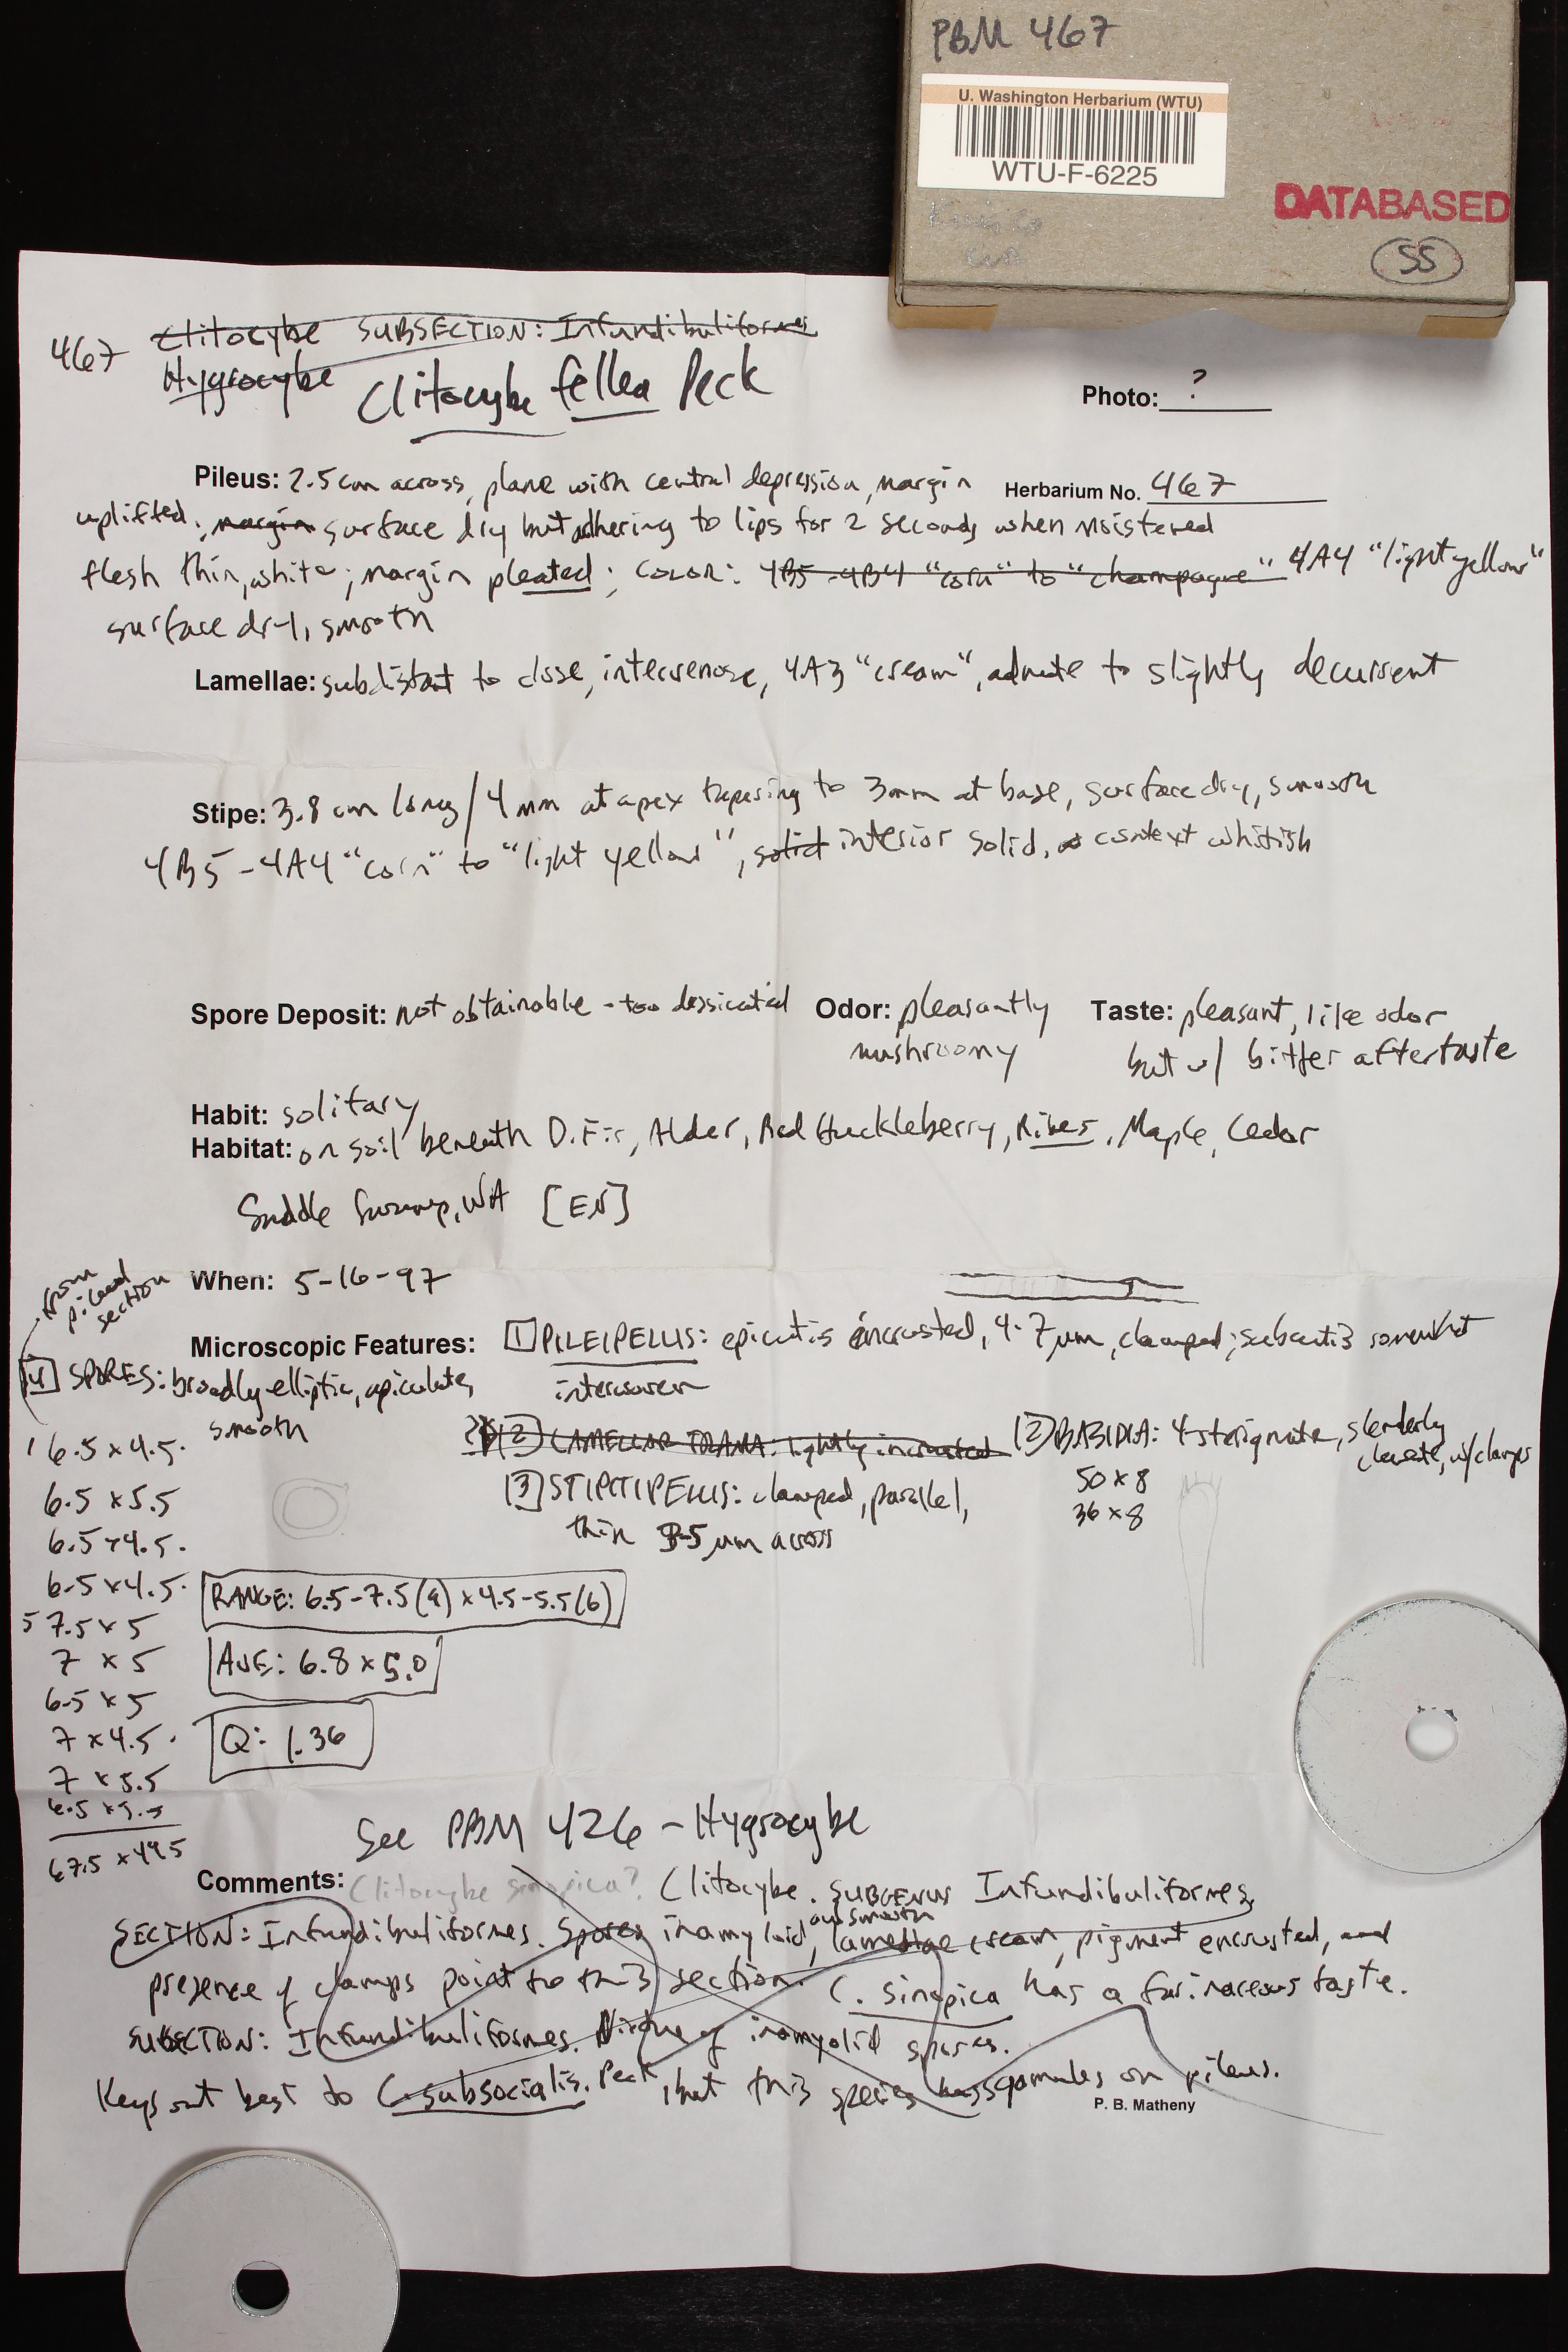 PBM 467
U. Washington Herbarium (WTU)
WTU-F-6225
DATABASED
SS
467 Clitocybe SUBSECTION: Infundibuliformes
Hygrocybe Clitocybe fellea Peck
Photo: ?
Pileus: 2.5 cm across, plane with central depression, margin
Herbarium No. 467
uplifted; margin surface dry but adhering to lips for 2 seconds when moistened
flesh thin, white; margin pleated; COLOR: 4B5-4B4 "corn" to "champagne" 4A4 "light yellow"
surface dry, smooth
Lamellae: subdistant to close, intervenose, 4A3 "cream", adnate to slightly decurrent
Stipe: 3.8 cm long / 4 mm at apex tapering to 3mm at base, surface dry, smooth
4B5-4A4 "corn" to "light yellow", solid interior solid, context whitish
Spore Deposit: not obtainable - too dessicated Odor: pleasantly Taste: pleasant, like odor
mushroomy but w/ bitter aftertaste
Habit: solitary
Habitat: on soil beneath D.Fir, Alder, Red Huckleberry, Ribes, Maple, Cedar
Swamp, WA [EN]
When: 5-16-97
from pileal section
Microscopic Features: [1] PILEIPELLUS: epicutis encrusted, 4-7 µm, clamped; subcutis somewhat
interwoven
[4] SPORES: broadly elliptic, apiculate,
smooth
[2] LAMELLAR TRAMA: lightly incrusted [2] BASIDIA: 4-sterigmate, slenderly
clavate, w/clamps
[3] STIPITIPELLUS: clamped, parallel,
thin 3-5 µm across
50 x 8
36 x 8
1 6.5 x 4.5
6.5 x 5.5
6.5 x 4.5
6.5 x 4.5
5 7.5 x 5
7 x 5
6.5 x 5
7 x 4.5
7 x 5.5
6.5 x 5.5
67.5 x 49.5
RANGE: 6.5-7.5(a) x 4.5-5.5(b)
AVE: 6.8 x 5.0
Q: 1.36
See PBM 426 - Hygrocybe
Comments: Clitocybe sinopica? Clitocybe. SUBGENUS Infundibuliformes,
SECTION: Infundibuliformes. Spores inamyloid, and smooth lamellae cream, pigment encrusted, and
presence of clamps point to this section. C. sinopica has a farinaceous taste.
SUBSECTION: Infundibuliformes. Virtue of inamyolid spores.
Keys out best to C. subsocialis. Peck, but this species has squamules on pileus.
P. B. Matheny